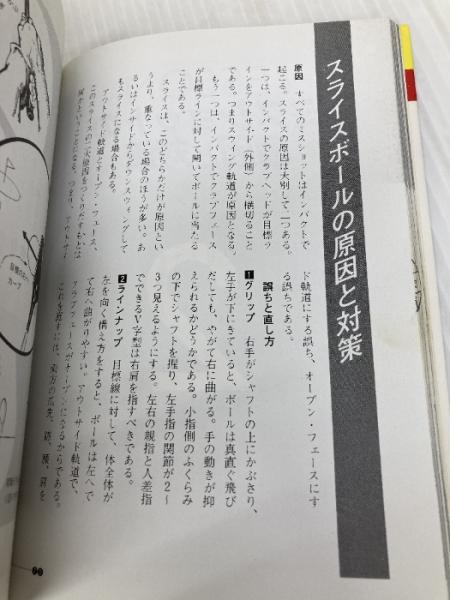 スライスボールの原因と対策
原因　すべてのミスショットはインパクトで
起こる。スライスの原因は大別して二つある。
一つは、インパクトでクラブヘッドが目標ラ
インをアウトサイド（外側）から横切ること
である。つまりスウィング軌道が原因となる。
もう一つは、インパクトでクラブフェース
が目標ラインに対して開いてボールに当たる
ことである。
スライスは、このどちらかだけが原因とい
うより、重なっている場合のほうが多い。あ
るいはインサイドからダウンスウィングして
もスライスになる場合もある。
アウトサイド軌道とオープン・フェース、
このスライスの二大原因をつくりだすもとは
ド軌道にする誤ち、オープン・フェースにす
る誤ちである。
誤ちと直し方
1グリップ　右手がシャフトの上にかぶさり、
左手が下にきていると、ボールは真直ぐ飛び
だしても、やがて右に曲がる。手の動きが抑
えられるかどうかである。小指側のふくらみ
の下でシャフトを握り、左手指の関節が2〜
3つ見えるようにする。左右の親指と人差指
でできるV字型は右肩を指すべきである。
2ラインナップ　目標線に対して、体全体が
左を向く構え方をすると、ボールは左へで
て右へ曲がりやすい。アウトサイド軌道で、
クラブフェースがオープンになるからである。
これを直すには、両方の爪先、膝、腰、肩を
カーブ